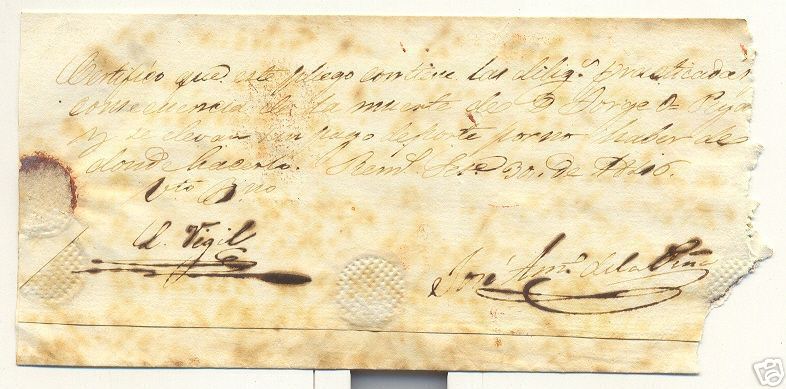 Certifico que este pliego contiene las dilig.s practicadas
consecuencia de la muerte de D. Jorge
y se elevan sin pago de porte por no haber de
donde hacerlo. 30. de 1816.
Vto Bno
A. Vigil
José Ant.o de la Piña